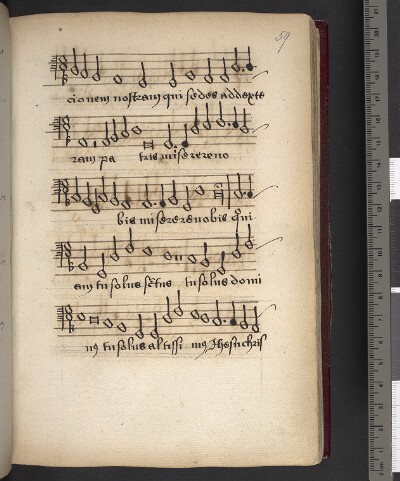 59
cionem nostram qui sedes ad dexte
ram pa tris miserereno
bis miserere nobis Qui
am tu solus sctus tu solus domi
n9 tu solus altissi m9 Jhesu chris